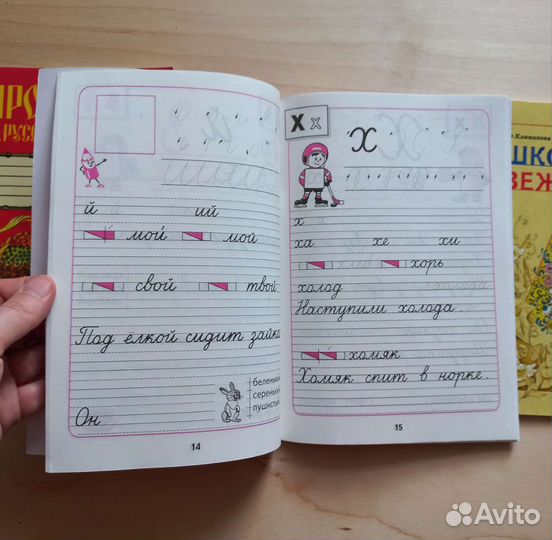 РУСС
й ий
мои́ мой
свой твой
Под ёлкой сидит зайка
беленьки
серенький
пушистый
Он
14
Х х
Х
х
ха хе хи
хорь
холод
Наступили холода.
хомяк
Хомяк спит в норке.
15
Климанова
ШКО
ВЕЖ
Avito